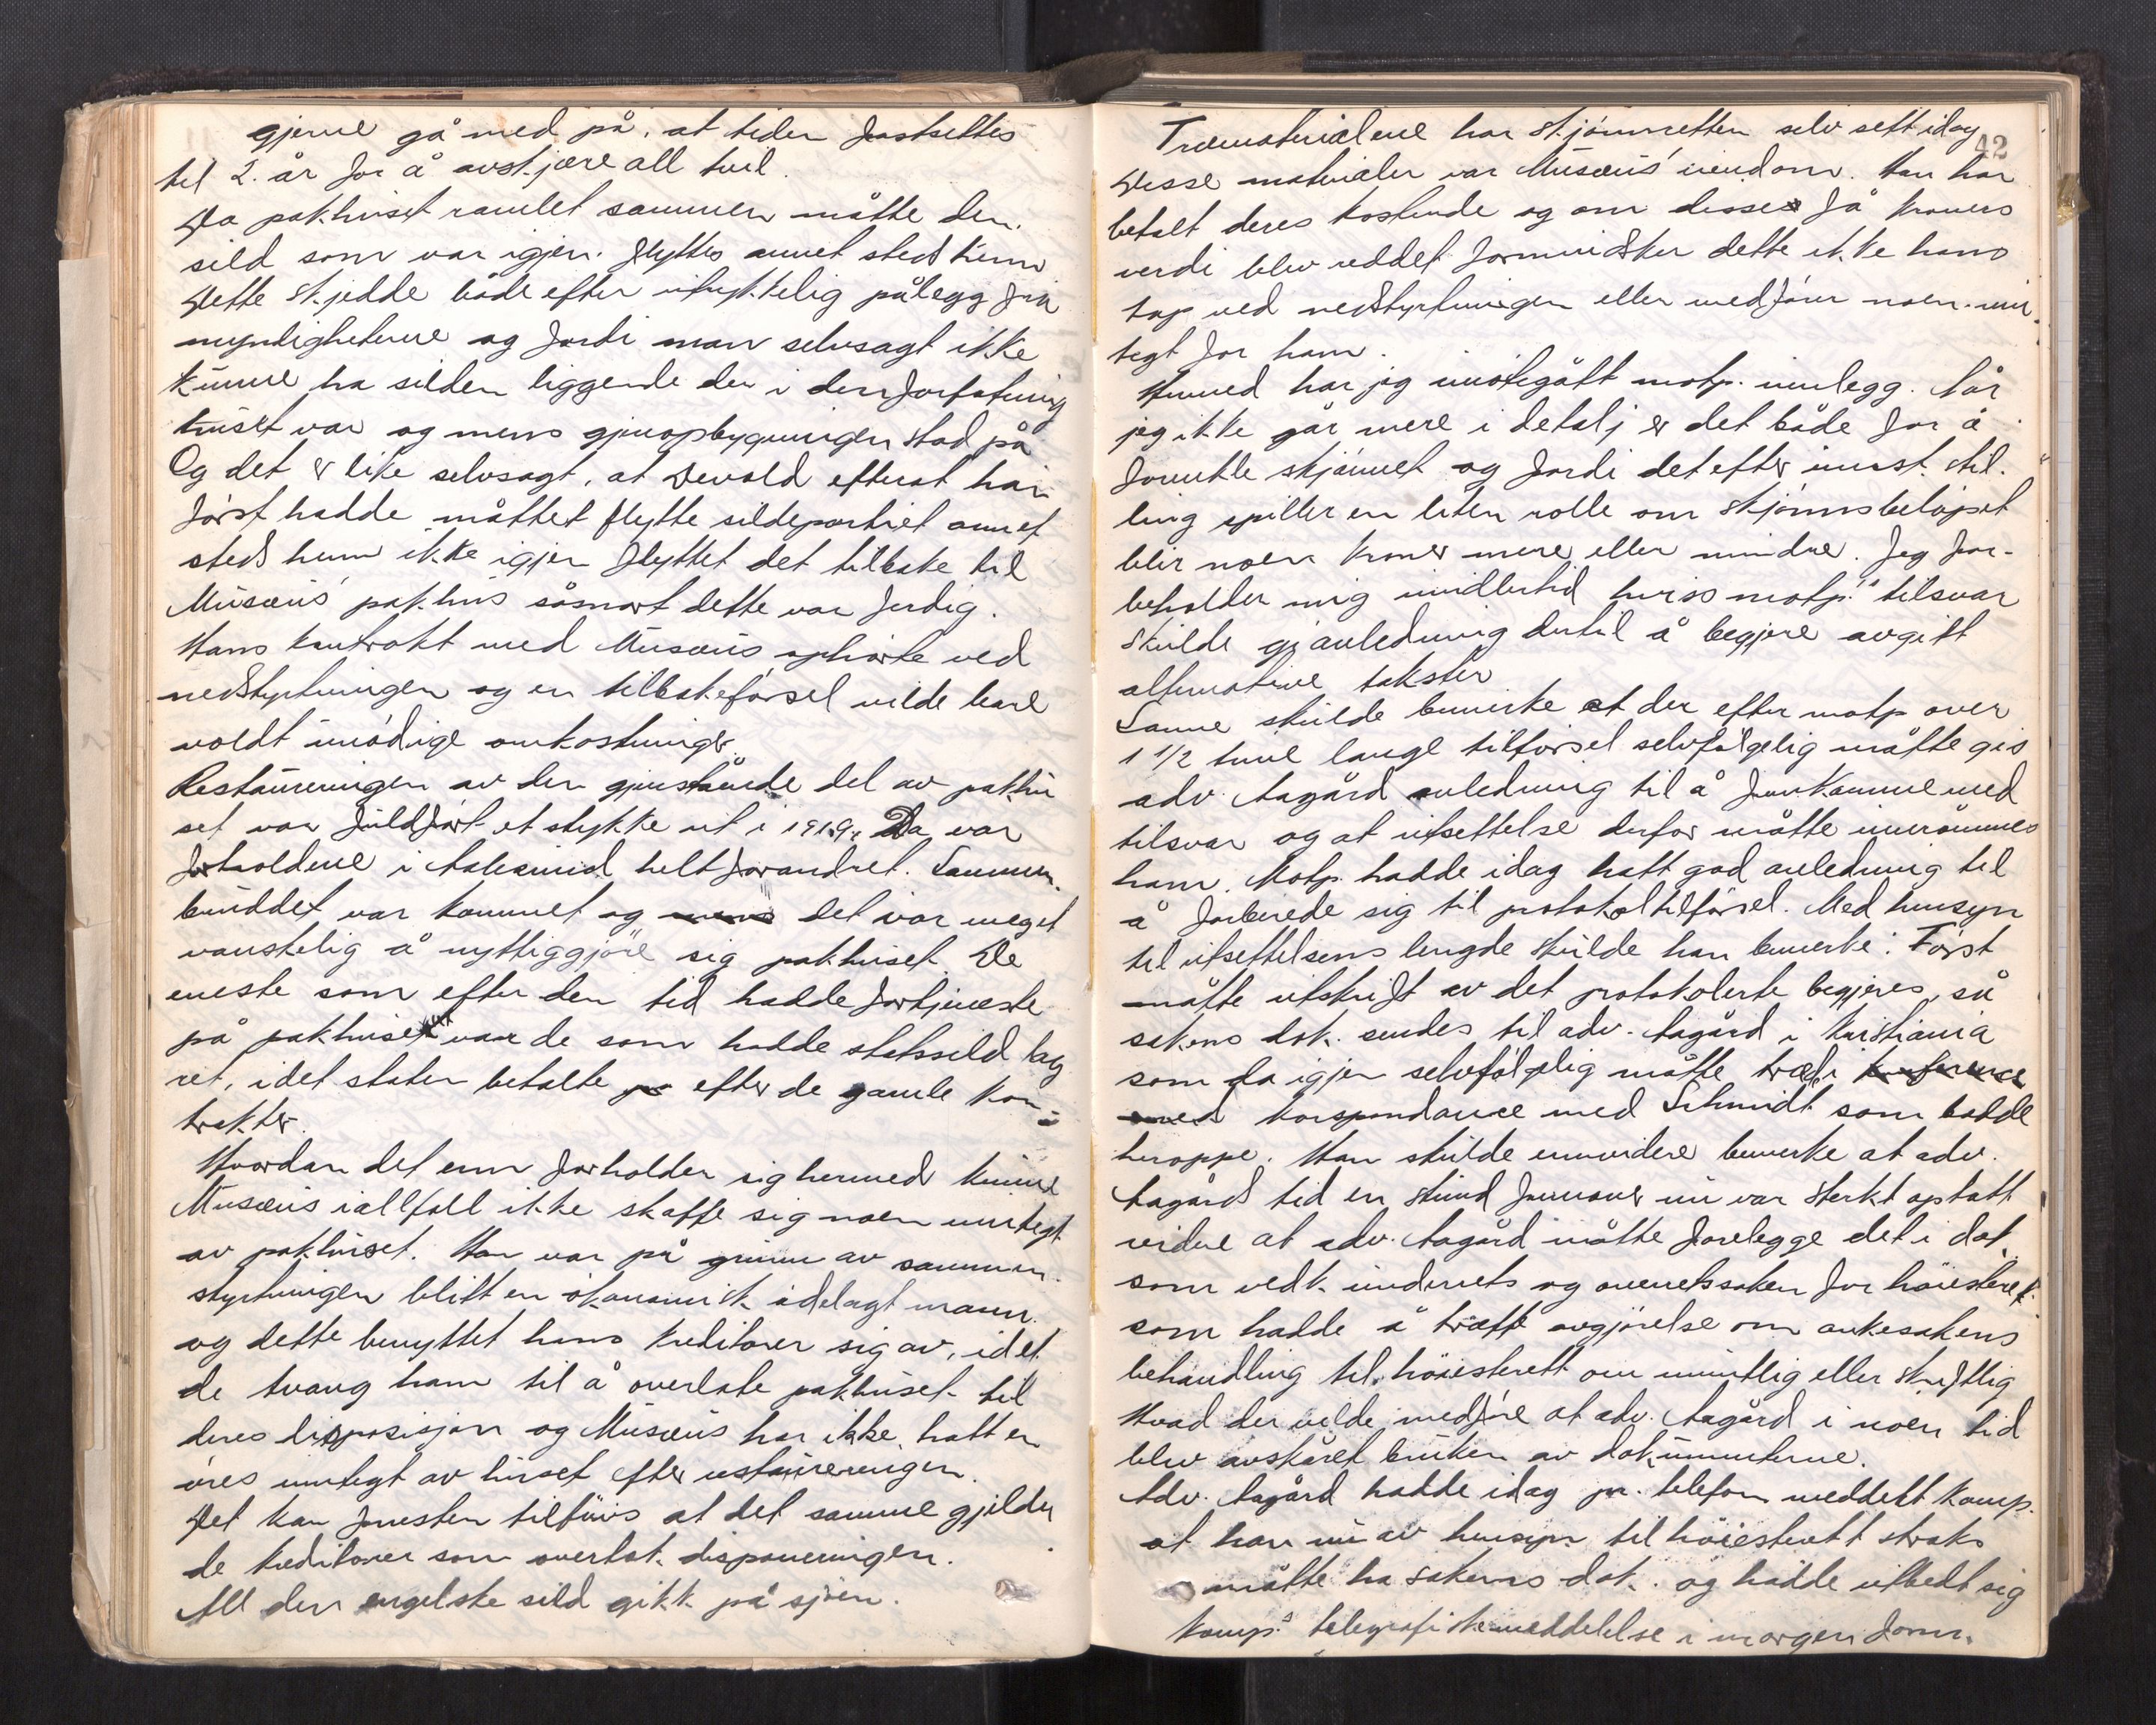 gjerne gå med på, at tiden fastsettes
til 2. år for å avskjære all tvil.
Da pakhuset ramlet sammen måtte den
sild som var igjen flyttes annet steds hinn
Dette skjedde både efter uttrykkelig pålegg fra
myndigheterne og fordi man selvsagt ikke
kunne ha silden liggende der i den forfatning
huset var og mens gjenopbygningen stod på
Og det er like selvsagt, at Devold efterat han
først hadde måttet flytte sildepartiet annet
steds henn ikke igjen flyttet det tilbake til
Musæus' pakhus såsnart dette var ferdig.
Hans kontrakt med Musæus ophørte ved
nedstyrtningen og en tilbakeførsel vilde bare
voldt unødige omkostninger.
Restaureringen av den gjenstående del av pakhu
set var fuldført et stykke ut i 1919. Da var
forholdene i Aalesund helt forandret. Sammen-
bruddet var kommet og det var meget
vanskelig å nyttiggjøre sig pakhuset. De
eneste som efter den tid hadde fortjeneste
på pakhuset var de som hadde statssild lag
ret, idet staten betalte efter de gamle kon=
trakter.
Hvordan det enn forholder sig hermed kunne
Musæus iallfall ikke skaffe sig noen inntegt
av pakhuset. Han var på grunn av sammen-
styrtningen blitt en økonomisk ødelagt mann
og dette benyttet hans kreditorer sig av, idet
de tvang ham til å overlate pakhuset til
deres disposisjon og Musæus har ikke hatt en
øres inntegt av huset efter restaureringen.
Det kan forresten tilføies at det samme gjelder
de kreditorer som overtok disponeringen.
All den engelske sild gikk på sjøen.
42
Træmaterialene har skjønnsretten selv sett idag
Disse materialer var Musæus' eiendom. Han har
betalt deres kostende og om disse få kroners
verdi blev reddet formindsker dette ikke hans
tap ved nedstyrtningen eller medfører noen inn-
tegt for ham.
Hermed har jeg imøtegått motp. innlegg. Når
jeg ikke går mere i detalj er det både for å
forenkle skjønnet og fordi det efter innst. stil-
ling spiller en liten rolle om skjønnsbeløpet
blir noen kroner mere eller mindre. Jeg for-
beholder mig imidlertid hviss motp.s tilsvar
skulde gi anledning dertil å begjære avgitt
alternative takster
Sanne skulde bemerke at der efter motp over
1 1/2 time lange tilførsel selvfølgelig måtte gis
adv. Aagård anledning til å fremkomme med
tilsvar og at utsettelse derfor måtte innrømmes
ham. Motp. hadde idag hatt god anledning til
å forberede sig til protokoltilførsel. Med hensyn
til utsettelsens lengde skulde han bemerke: Først
måtte utskrift av det protokolerte begjæres, så
sakens dok. sendes til adv. Aagård i Kristiania
som da igjen selvfølgelig måtte træ i konferance
med korspondance med Schmidt som bodde
heroppe. Han skulde ennvidere bemerke at adv.
Aagårds tid en stund fremover nu var sterkt optatt
videre at adv. Aagård måtte forelegge det i dok.
som vedk. underrets og overretssaken for høiesterett
som hadde å træffe avgjørelse om ankesakens
behandling til høiesterett om muntlig eller skriftlig
Hvad der vilde medføre at adv. Aagård i noen tid
blev avskåret bruken av dokumenterne.
Adv. Aagård hadde idag pr. telefon meddelt komp.
at han nu av hensyn til høiesterett straks
måtte ha sakens dok. og hadde utbedt sig
komp.s telegrafiske meddelelse i morgen form.